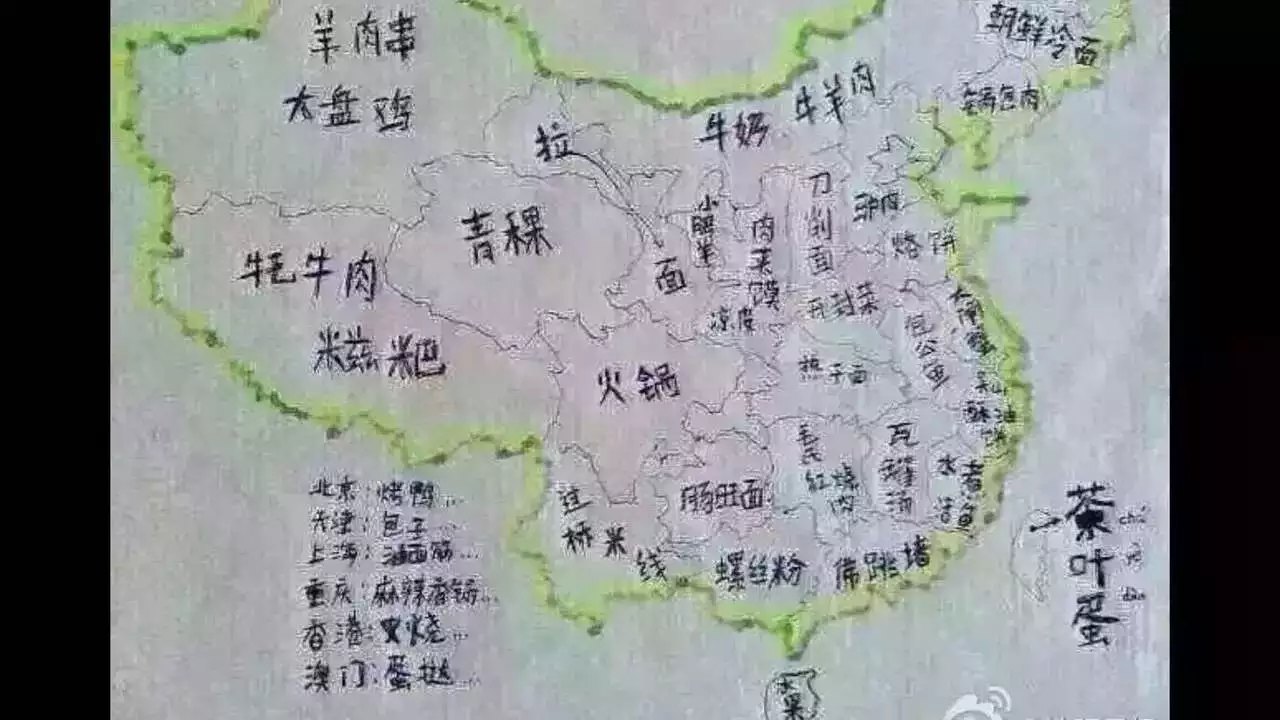 羊肉串
大盘鸡
朝鲜冷面
锅包肉
牛羊肉
牛奶
拉
面
青稞
牦牛肉
糍粑
小肥羊
肉夹馍
刀削面
烙饼
凉皮
开封菜
火锅
热干面
毛氏红烧肉
瓦罐汤
肠旺面
过桥米线
螺丝粉
佛跳墙
水煮
茶叶蛋
水果
北京:烤鸭...
天津:包子...
上海:油面筋...
重庆:麻辣香锅...
香港:叉烧...
澳门:蛋挞...